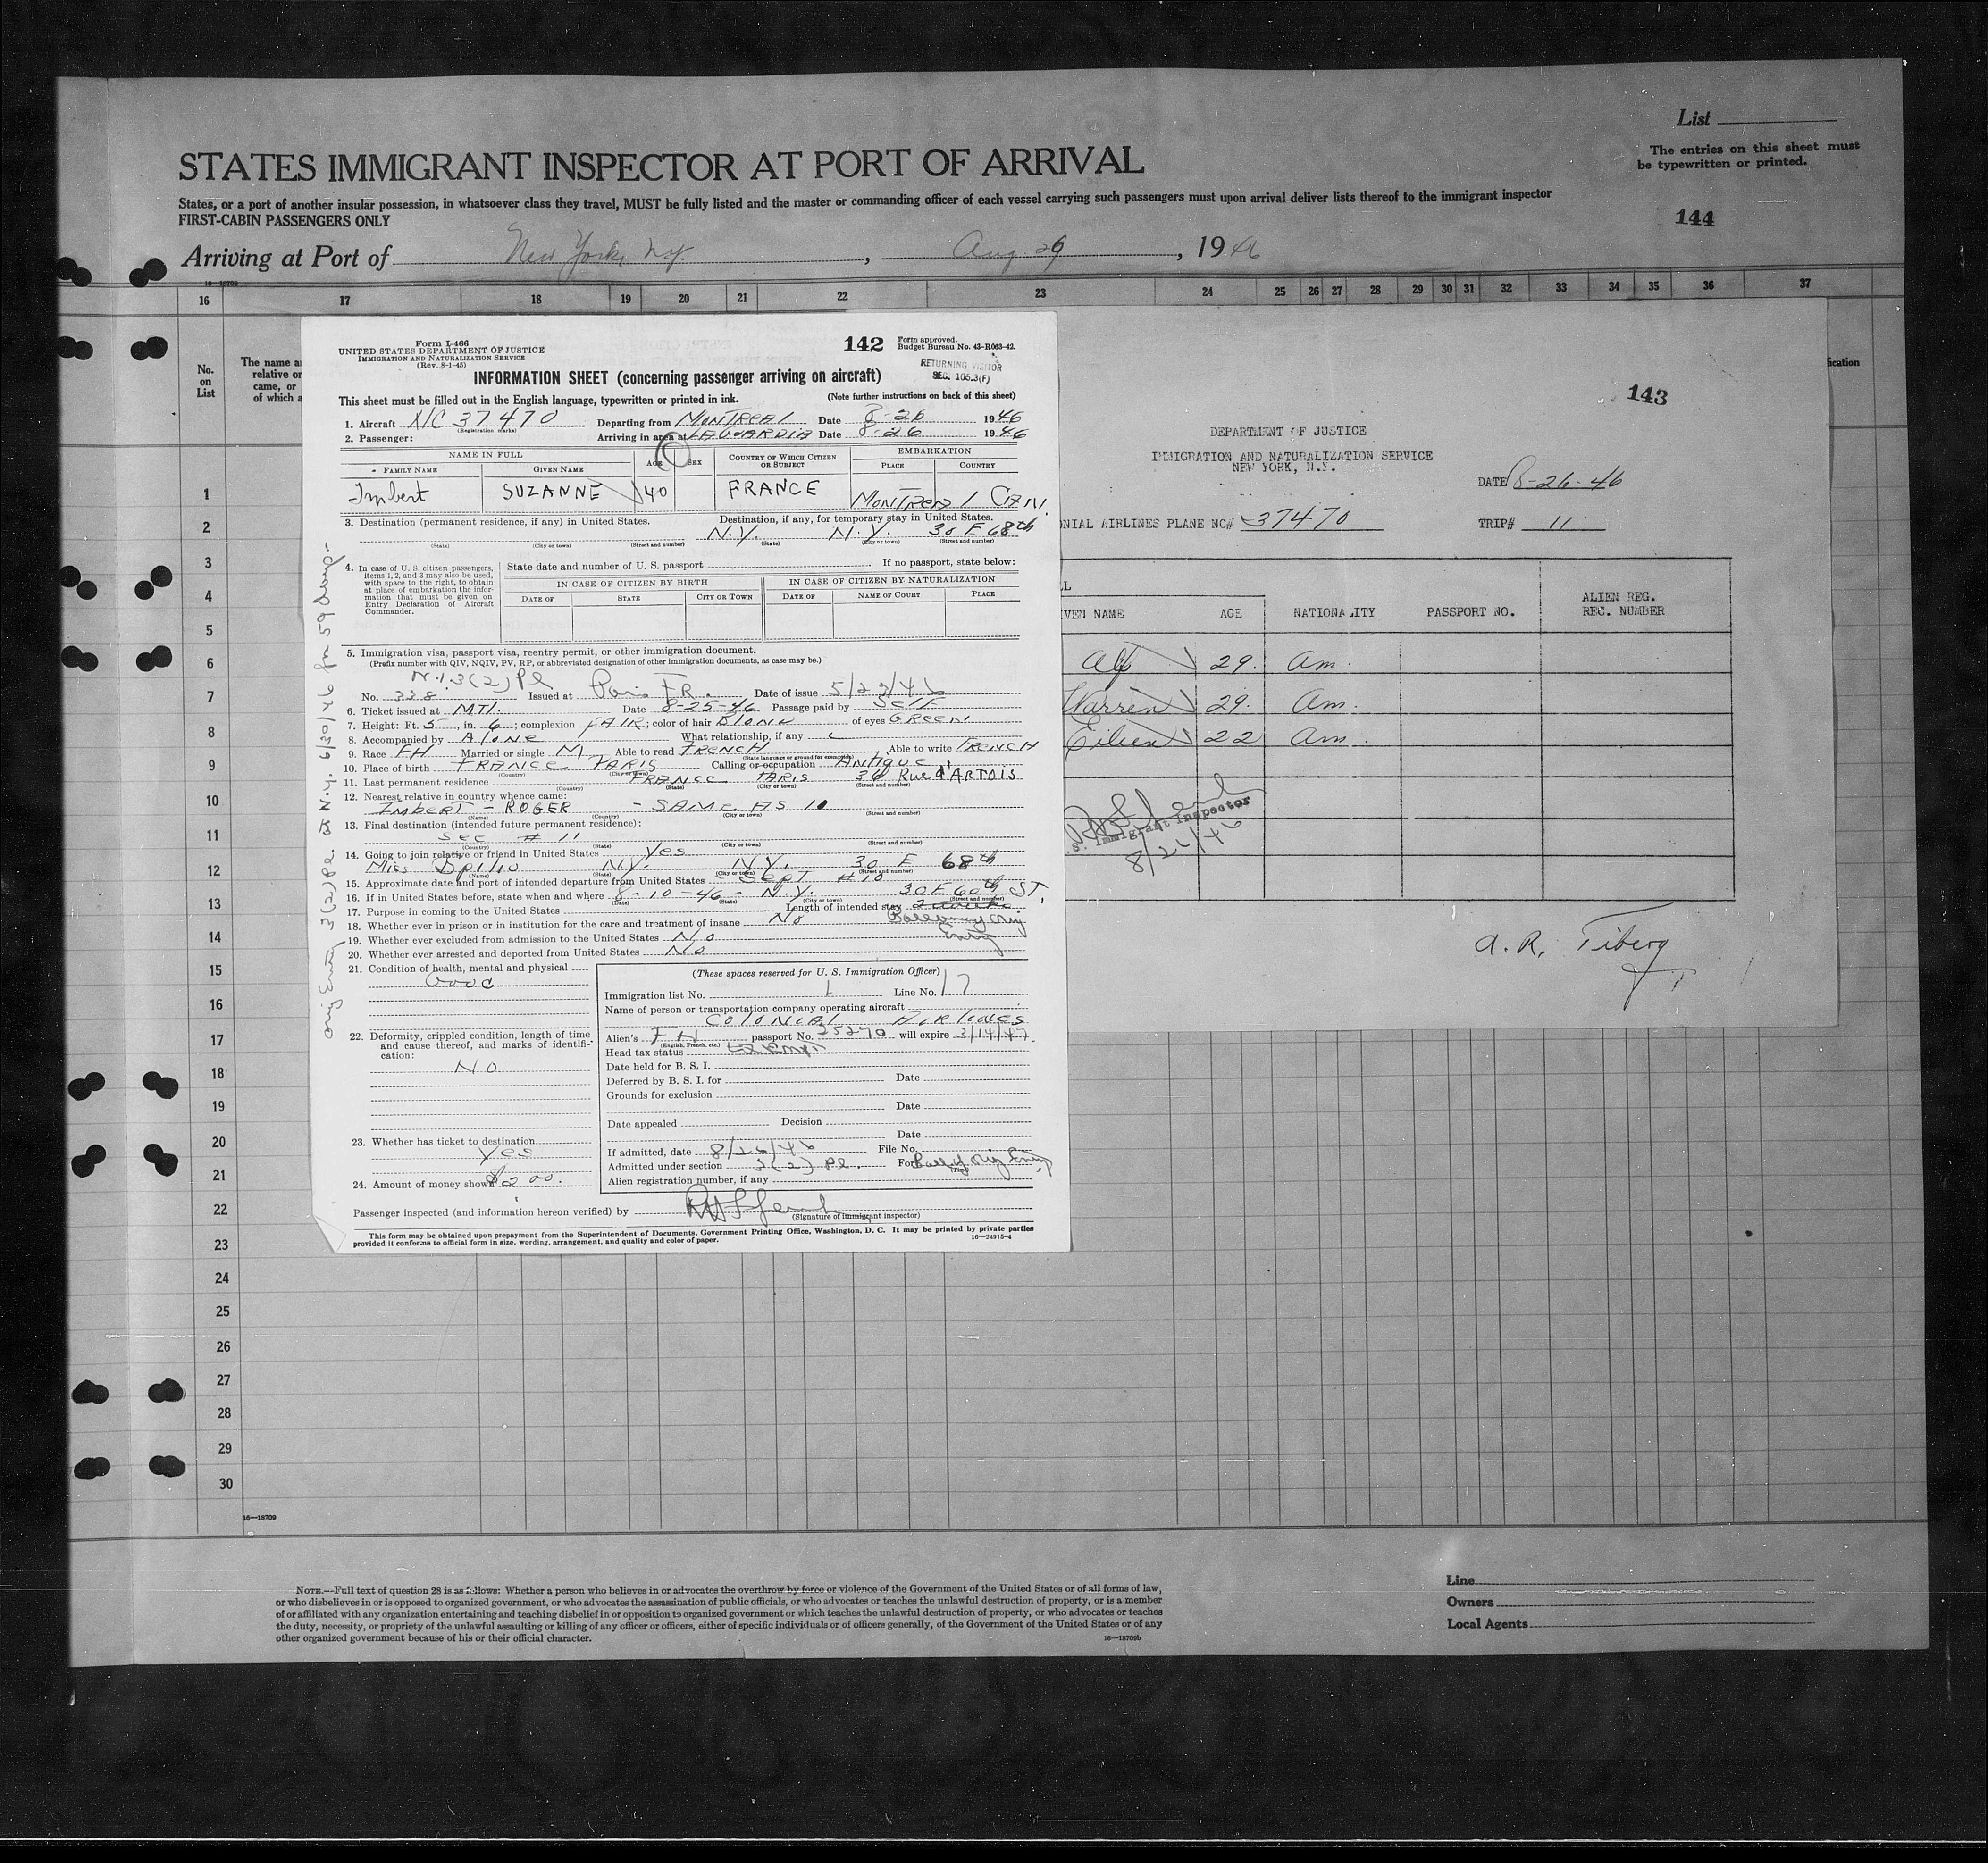 List
The entries on this sheet must
be typewritten or printed.
STATES IMMIGRANT INSPECTOR AT PORT OF ARRIVAL
States, or a port of another insular possession, in whatsoever class they travel, MUST be fully listed and the master or commanding officer of each vessel carrying such passengers must upon arrival deliver lists thereof to the immigrant inspector
FIRST-CABIN PASSENGERS ONLY
144
Arriving at Port of New York, N.Y. , Aug. 29 , 1946
16—18709
16 17 18 19 20 21 22 23 24 25 26 27 28 29 30 31 32 33 34 35 36 37
No.
on
List
The name a
relative or
came, or
of which a
ication
1
2
3
4
5
6
7
8
9
10
11
12
13
14
15
16
17
18
19
20
21
22
23
24
25
26
27
28
29
30
16—18709
Form I-466
UNITED STATES DEPARTMENT OF JUSTICE
IMMIGRATION AND NATURALIZATION SERVICE
(Rev. 8-1-45)
142
Form approved.
Budget Bureau No. 43-R063-42.
RETURNING VISITOR
SEC. 105.3(F)
INFORMATION SHEET (concerning passenger arriving on aircraft)
This sheet must be filled out in the English language, typewritten or printed in ink. (Note further instructions on back of this sheet)
1. Aircraft N/C 37470 Departing from MONTREAL Date 8-26 1946
(Registration marks)
2. Passenger: Arriving in area at LAGUARDIA Date 8-26 1946
NAME IN FULL AGE SEX COUNTRY OF WHICH CITIZEN OR SUBJECT EMBARKATION
FAMILY NAME GIVEN NAME PLACE COUNTRY
Imbert SUZANNE 40 FRANCE MONTREAL CAN.
3. Destination (permanent residence, if any) in United States. Destination, if any, for temporary stay in United States.
N.Y. N.Y. 30 E 68th
(State) (City or town) (Street and number) (State) (City or town) (Street and number)
4. In case of U. S. citizen passengers,
items 1, 2, and 3 may also be used,
with space to the right, to obtain
at place of embarkation the infor-
mation that must be given on
Entry Declaration of Aircraft
Commander.
State date and number of U. S. passport If no passport, state below:
IN CASE OF CITIZEN BY BIRTH IN CASE OF CITIZEN BY NATURALIZATION
DATE OF STATE CITY OR TOWN DATE OF NAME OF COURT PLACE
5. Immigration visa, passport visa, reentry permit, or other immigration document.
(Prefix number with QIV, NQIV, PV, RP, or abbreviated designation of other immigration documents, as case may be.)
3(2) Pl
No. 338 Issued at Paris FR. Date of issue 5/23/46
6. Ticket issued at MTL. Date 8-25-46 Passage paid by Self
7. Height: Ft. 5, in. 6; complexion FAIR; color of hair Blond of eyes GREEN
8. Accompanied by Alone What relationship, if any
9. Race FH Married or single M Able to read FRENCH Able to write FRENCH
(State language or ground for exemption)
10. Place of birth FRANCE PARIS Calling or occupation ANTIQUE
(Country) (City or town)
11. Last permanent residence FRANCE PARIS 36 Rue d'ARTOIS
(Country) (State) (City or town) (Street and number)
12. Nearest relative in country whence came:
IMBERT - ROGER - SAME AS 10
(Name) (Country) (City or town) (Street and number)
13. Final destination (intended future permanent residence):
See # 11
(Country) (State) (City or town) (Street and number)
14. Going to join relative or friend in United States Yes
Miss N.Y. N.Y. 30 E 68th
(Name) (State) (City or town) (Street and number)
15. Approximate date and port of intended departure from United States SEPT #10
16. If in United States before, state when and where 8-10-46 - N.Y. 30 E 60th ST
(Date) (State) (City or town) (Street and number)
17. Purpose in coming to the United States Length of intended stay
18. Whether ever in prison or in institution for the care and treatment of insane No
19. Whether ever excluded from admission to the United States No
20. Whether ever arrested and deported from United States No
21. Condition of health, mental and physical
Good
22. Deformity, crippled condition, length of time
and cause thereof, and marks of identifi-
cation:
No
23. Whether has ticket to destination
Yes
24. Amount of money shown $200.
(These spaces reserved for U. S. Immigration Officer)
Immigration list No. 1 Line No. 17
Name of person or transportation company operating aircraft
COLONIAL AIRLINES
Alien's FH passport No. 25270 will expire 3/14/47
(English, French, etc.)
Head tax status
Date held for B. S. I.
Deferred by B. S. I. for Date
Grounds for exclusion
Date
Date appealed Decision
Date
If admitted, date 8/26/46 File No.
Admitted under section 3(2) Pl. For Bal of Orig Entry
(Time)
Alien registration number, if any
Passenger inspected (and information hereon verified) by
(Signature of immigrant inspector)
This form may be obtained upon prepayment from the Superintendent of Documents, Government Printing Office, Washington, D. C. It may be printed by private parties
provided it conforms to official form in size, wording, arrangement, and quality and color of paper.
16—24915-4
Orig Entry 3(2) Pl. N.Y. 6/30/46 for 59 days
143
DEPARTMENT OF JUSTICE
IMMIGRATION AND NATURALIZATION SERVICE
NEW YORK, N.Y.
DATE 8-26-46
ONIAL AIRLINES PLANE NO# 37470 TRIP# 11
L
VEN NAME AGE NATIONALITY PASSPORT NO. ALIEN REG.
REG. NUMBER
Alf 29. Am.
Warren 29. Am.
Eileen 22 Am.
S. Immigrant Inspector
8/26/46
A. R. Tiberg
NOTE.—Full text of question 28 is as follows: Whether a person who believes in or advocates the overthrow by force or violence of the Government of the United States or of all forms of law,
or who disbelieves in or is opposed to organized government, or who advocates the assassination of public officials, or who advocates or teaches the unlawful destruction of property, or is a member
of or affiliated with any organization entertaining and teaching disbelief in or opposition to organized government or which teaches the unlawful destruction of property, or who advocates or teaches
the duty, necessity, or propriety of the unlawful assaulting or killing of any officer or officers, either of specific individuals or of officers generally, of the Government of the United States or of any
other organized government because of his or their official character.
16—18709b
Line
Owners
Local Agents